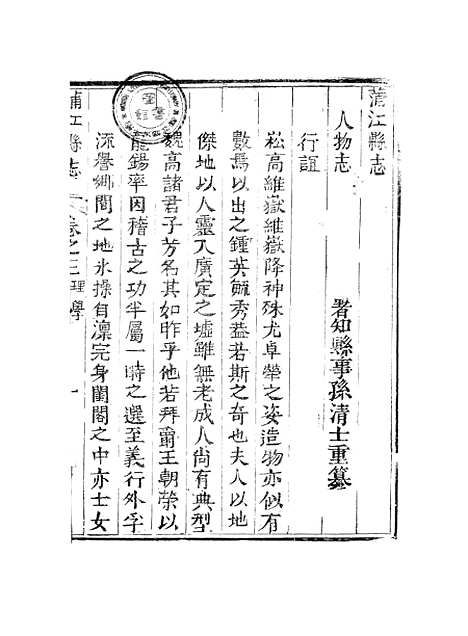 蒲江縣志
人物志
署知縣事孫清士重纂
行誼
崧高維嶽維嶽降神殊尤卓犖之姿造物亦似有
數焉以出之鍾英毓秀葢若斯之奇也夫人以地
傑地以人靈入廣定之墟雖無老成人尚有典型
魏高諸君子芳名其如昨乎他若拜爵王朝榮以
龍錫率因稽古之功半屬一時之選至義行外孚
流譽鄉閭之地氷操自凜完身閨閤之中亦士女
蒲江縣志
卷之三
理學
一